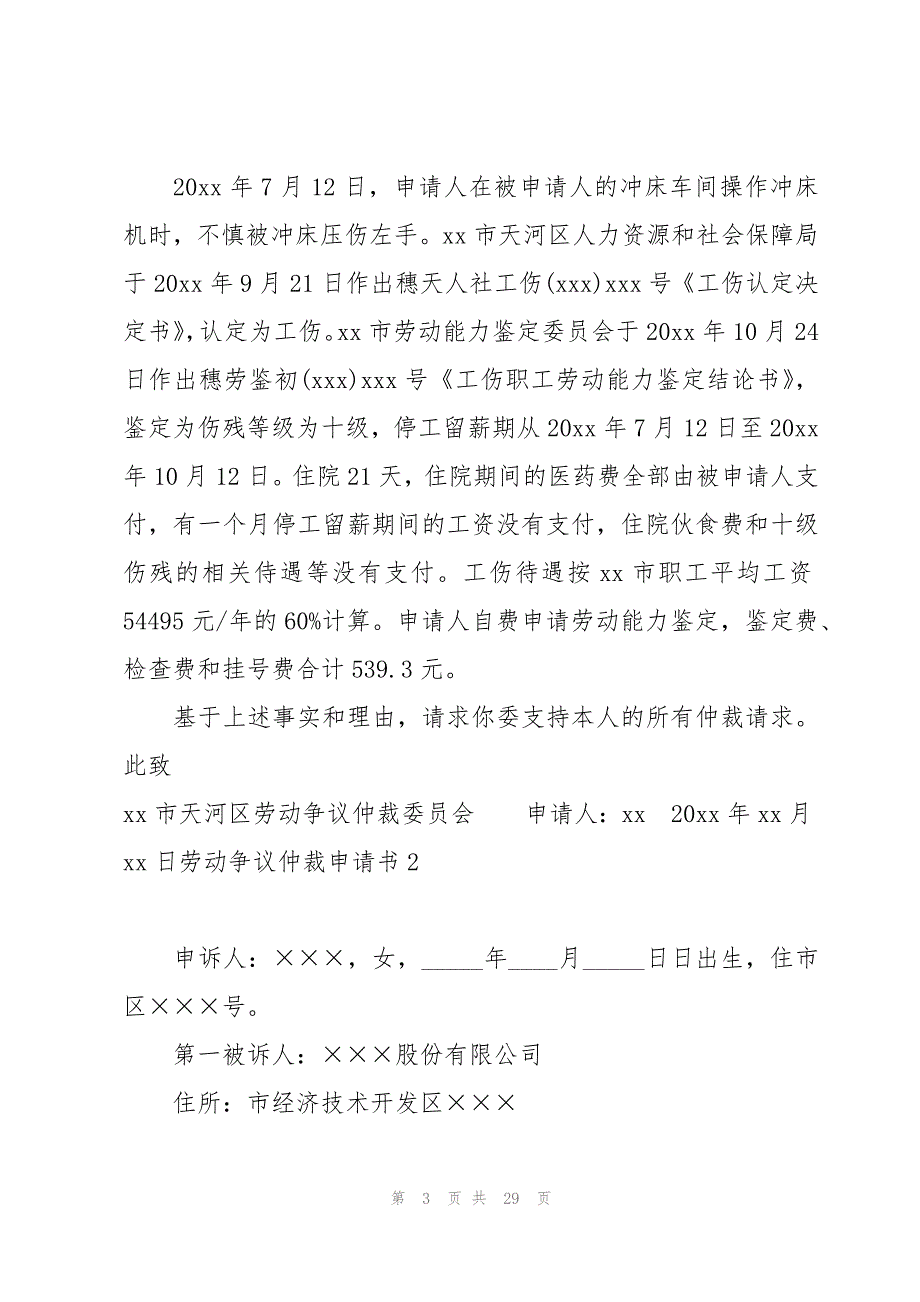 20xx 年 7 月 12 日，申请人在被申请人的冲床车间操作冲床
机时，不慎被冲床压伤左手。xx 市天河区人力资源和社会保障局
于 20xx 年 9 月 21 日作出穗天人社工伤(xxx)xxx 号《工伤认定决
定书》，认定为工伤。xx 市劳动能力鉴定委员会于 20xx 年 10 月 24
日作出穗劳鉴初(xxx)xxx 号《工伤职工劳动能力鉴定结论书》，
鉴定为伤残等级为十级，停工留薪期从 20xx 年 7 月 12 日至 20xx
年 10 月 12 日。住院 21 天，住院期间的医药费全部由被申请人支
付，有一个月停工留薪期间的工资没有支付，住院伙食费和十级
伤残的相关侍遇等没有支付。工伤待遇按 xx 市职工平均工资
54495 元/年的 60%计算。申请人自费申请劳动能力鉴定，鉴定费、
检查费和挂号费合计 539.3 元。
基于上述事实和理由，请求你委支持本人的所有仲裁请求。
此致
xx 市天河区劳动争议仲裁委员会 申请人：xx 20xx 年 xx 月
xx 日劳动争议仲裁申请书 2
申诉人：×××，女，_____年____月_____日日出生，住市
区×××号。
第一被诉人：×××股份有限公司
住所：市经济技术开发区×××
第 3 页 共 29 页